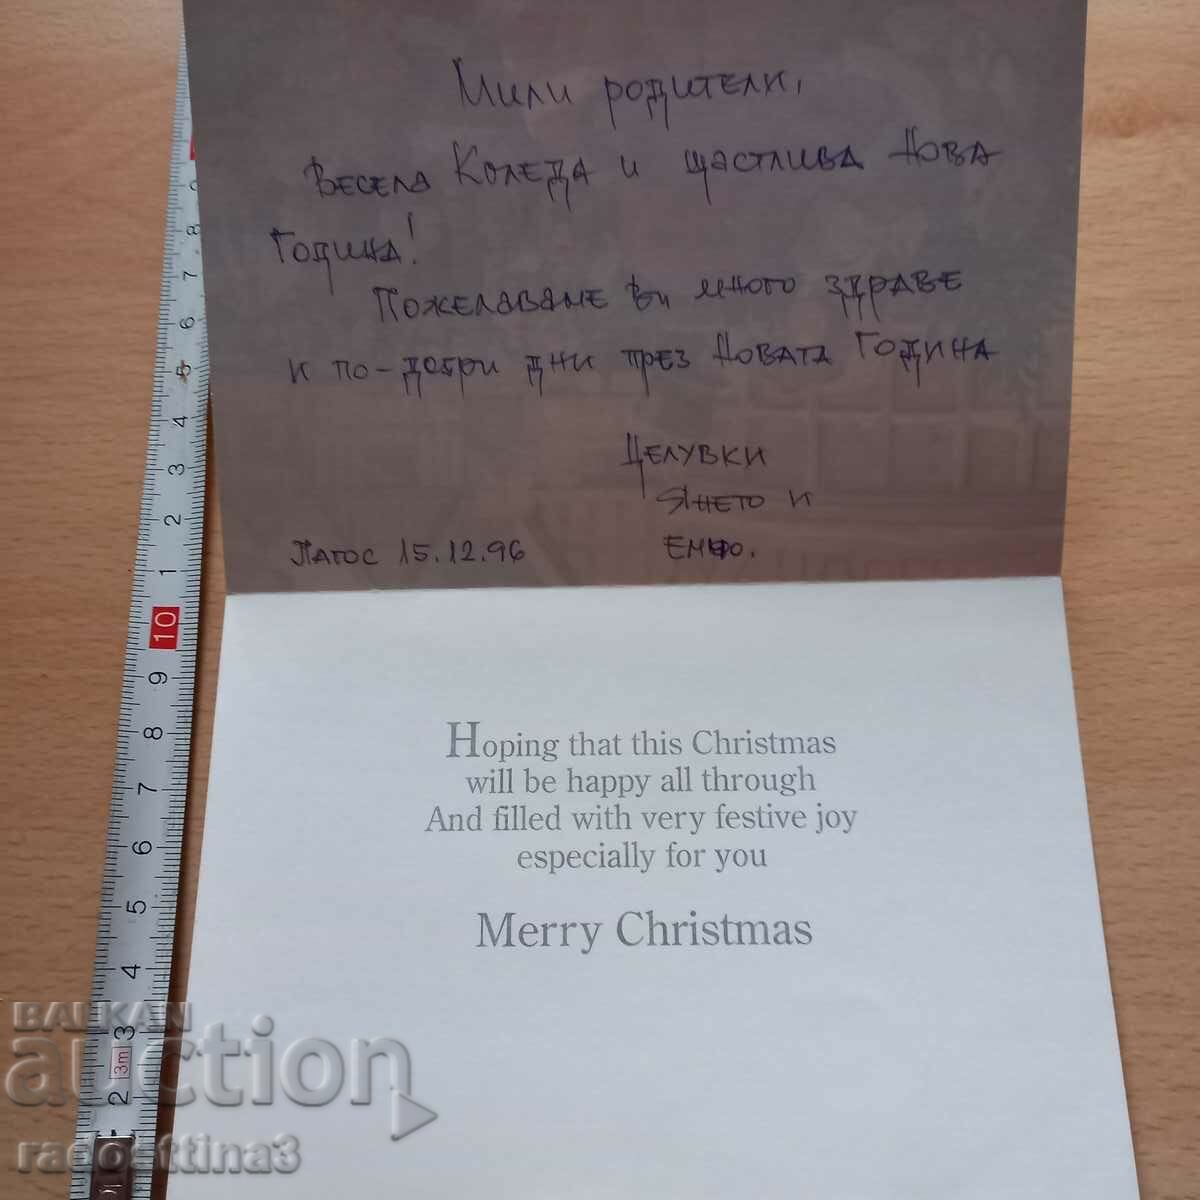 Мили родители,
Весела Коледа и щастлива Нова
Година!
Пожелаваме Ви много здраве
и по-добри дни през Новата Година
Целувки
Янето и
Лагос 15.12.96
Hoping that this Christmas
will be happy all through
And filled with very festive joy
especially for you
Merry Christmas
9
8
7
6
5
4
3
2
1
10
9
8
7
6
5
4
3
3m
2
BALKAN
auction
radosttina3